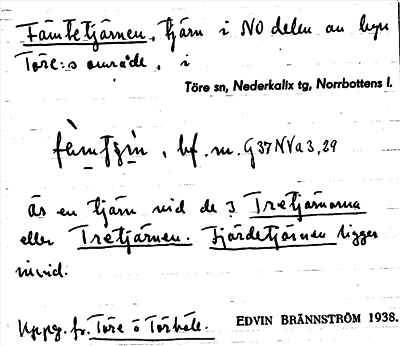 Fämtetjärnen, tjärn i NO delen av byn
Töre:s område, i
Töre sn, Nederkalix tg, Norrbottens l.
bf. m. G37NVa3,29
är en tjärn vid de 3 Tretjärnarna
eller Tretjärnen. Fjärdetjärnen ligger
invid.
Uppg. fr. Töre o Törböle.
EDVIN BRÄNNSTRÖM 1938.